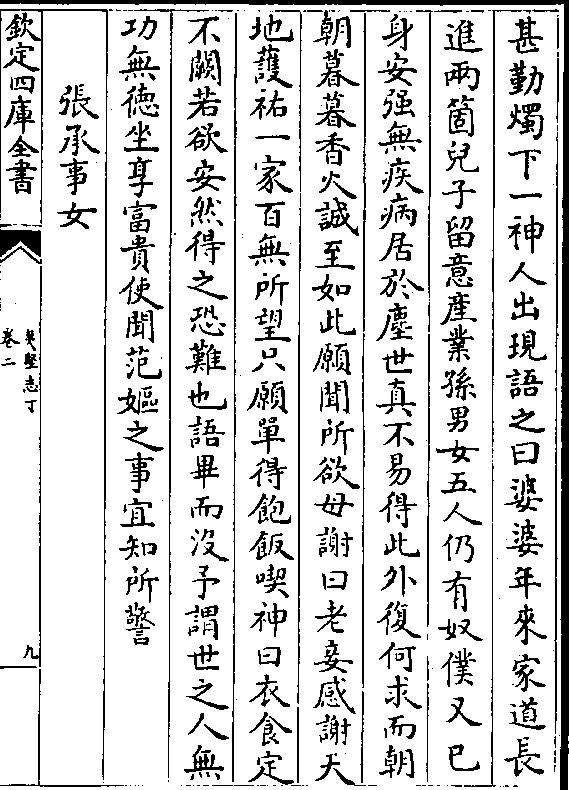 甚勤燭下一神人出現語之曰婆婆年來家道長
進兩箇兒子留意産業孫男女五人仍有奴僕又已
身安强無疾病居於塵世真不易得此外復何求而朝
朝暮暮香火誠至如此願聞所欲母謝曰老妾感謝天
地䕶祐一家百無所望只願單得飽飯喫神曰衣食定
不闕若欲安然得之恐難也語畢而沒予謂世之人無
功無德坐享富貴使聞范嫗之事宜知所警
張承事女
欽定四庫全書
夷堅志丁
卷二
九